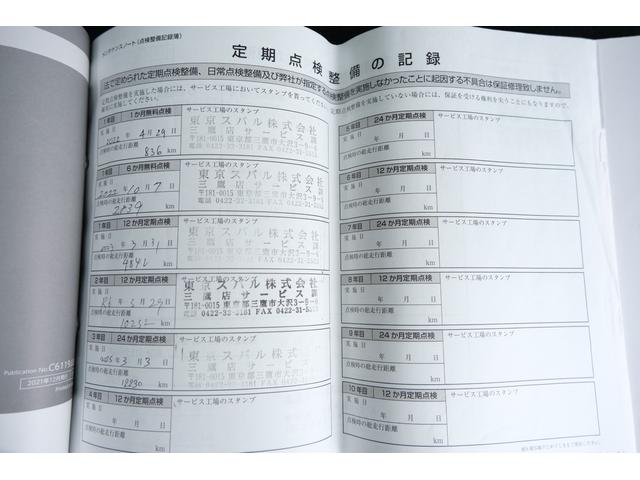 メンテナンスノート(点検整備記録簿)
定期点検整備の記録
法で定められた定期点検整備、日常点検整備及び弊社が指定する点検整備を実施しなかったことに起因する不具合は保証修理致しません。
1年目 1か月無料点検 サービス工場のスタンプ
実施日 2022年4月29日
点検時の総走行距離
836 km
東京スバル株式会社
三鷹店サービス課
〒181-0015 東京都三鷹市大沢3-9-6
1年目 6か月無料点検 サービス工場のスタンプ
実施日 2022年10月7日
点検時の総走行距離
2039 km
東京スバル株式会社
三鷹店サービス課
〒181-0015 東京都三鷹市大沢3-9-6
1年目 12か月定期点検 サービス工場のスタンプ
実施日 2023年3月31日
点検時の総走行距離
km
東京スバル株式会社
三鷹店サービス課
〒181-0015 東京都三鷹市大沢3-9-6
2年目 12か月定期点検 サービス工場のスタンプ
実施日 R6年3月29日
点検時の総走行距離
10252 km
東京スバル株式会社
三鷹店サービス課
〒181-0015 東京都三鷹市大沢3-9-6
3年目 24か月定期点検 サービス工場のスタンプ
実施日 2025年3月3日
点検時の総走行距離
18830 km
東京スバル株式会社
三鷹店サービス課
4年目 12か月定期点検 サービス工場のスタンプ
実施日 年 月 日
点検時の総走行距離
km
5年目 24か月定期点検 サービス工場のスタンプ
実施日 年 月 日
点検時の総走行距離
km
6年目 12か月定期点検 サービス工場のスタンプ
実施日 年 月 日
点検時の総走行距離
km
7年目 24か月定期点検 サービス工場のスタンプ
実施日 年 月 日
点検時の総走行距離
km
8年目 12か月定期点検 サービス工場のスタンプ
実施日 年 月 日
点検時の総走行距離
km
9年目 24か月定期点検 サービス工場のスタンプ
実施日 年 月 日
点検時の総走行距離
km
10年目 12か月定期点検 サービス工場のスタンプ
実施日 年 月 日
点検時の総走行距離
km
Publication No.
2021年12月